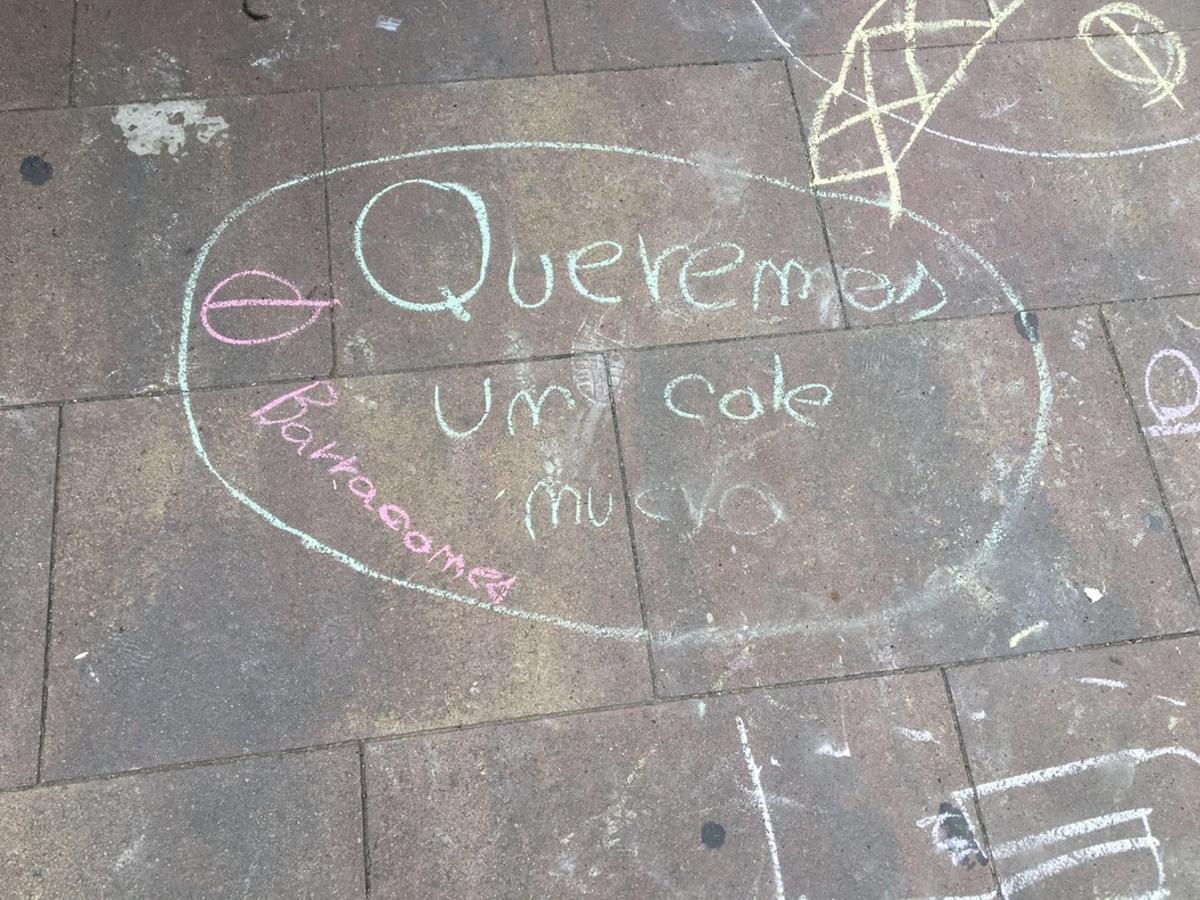 Queremos
un cole
nuevo
Barracones